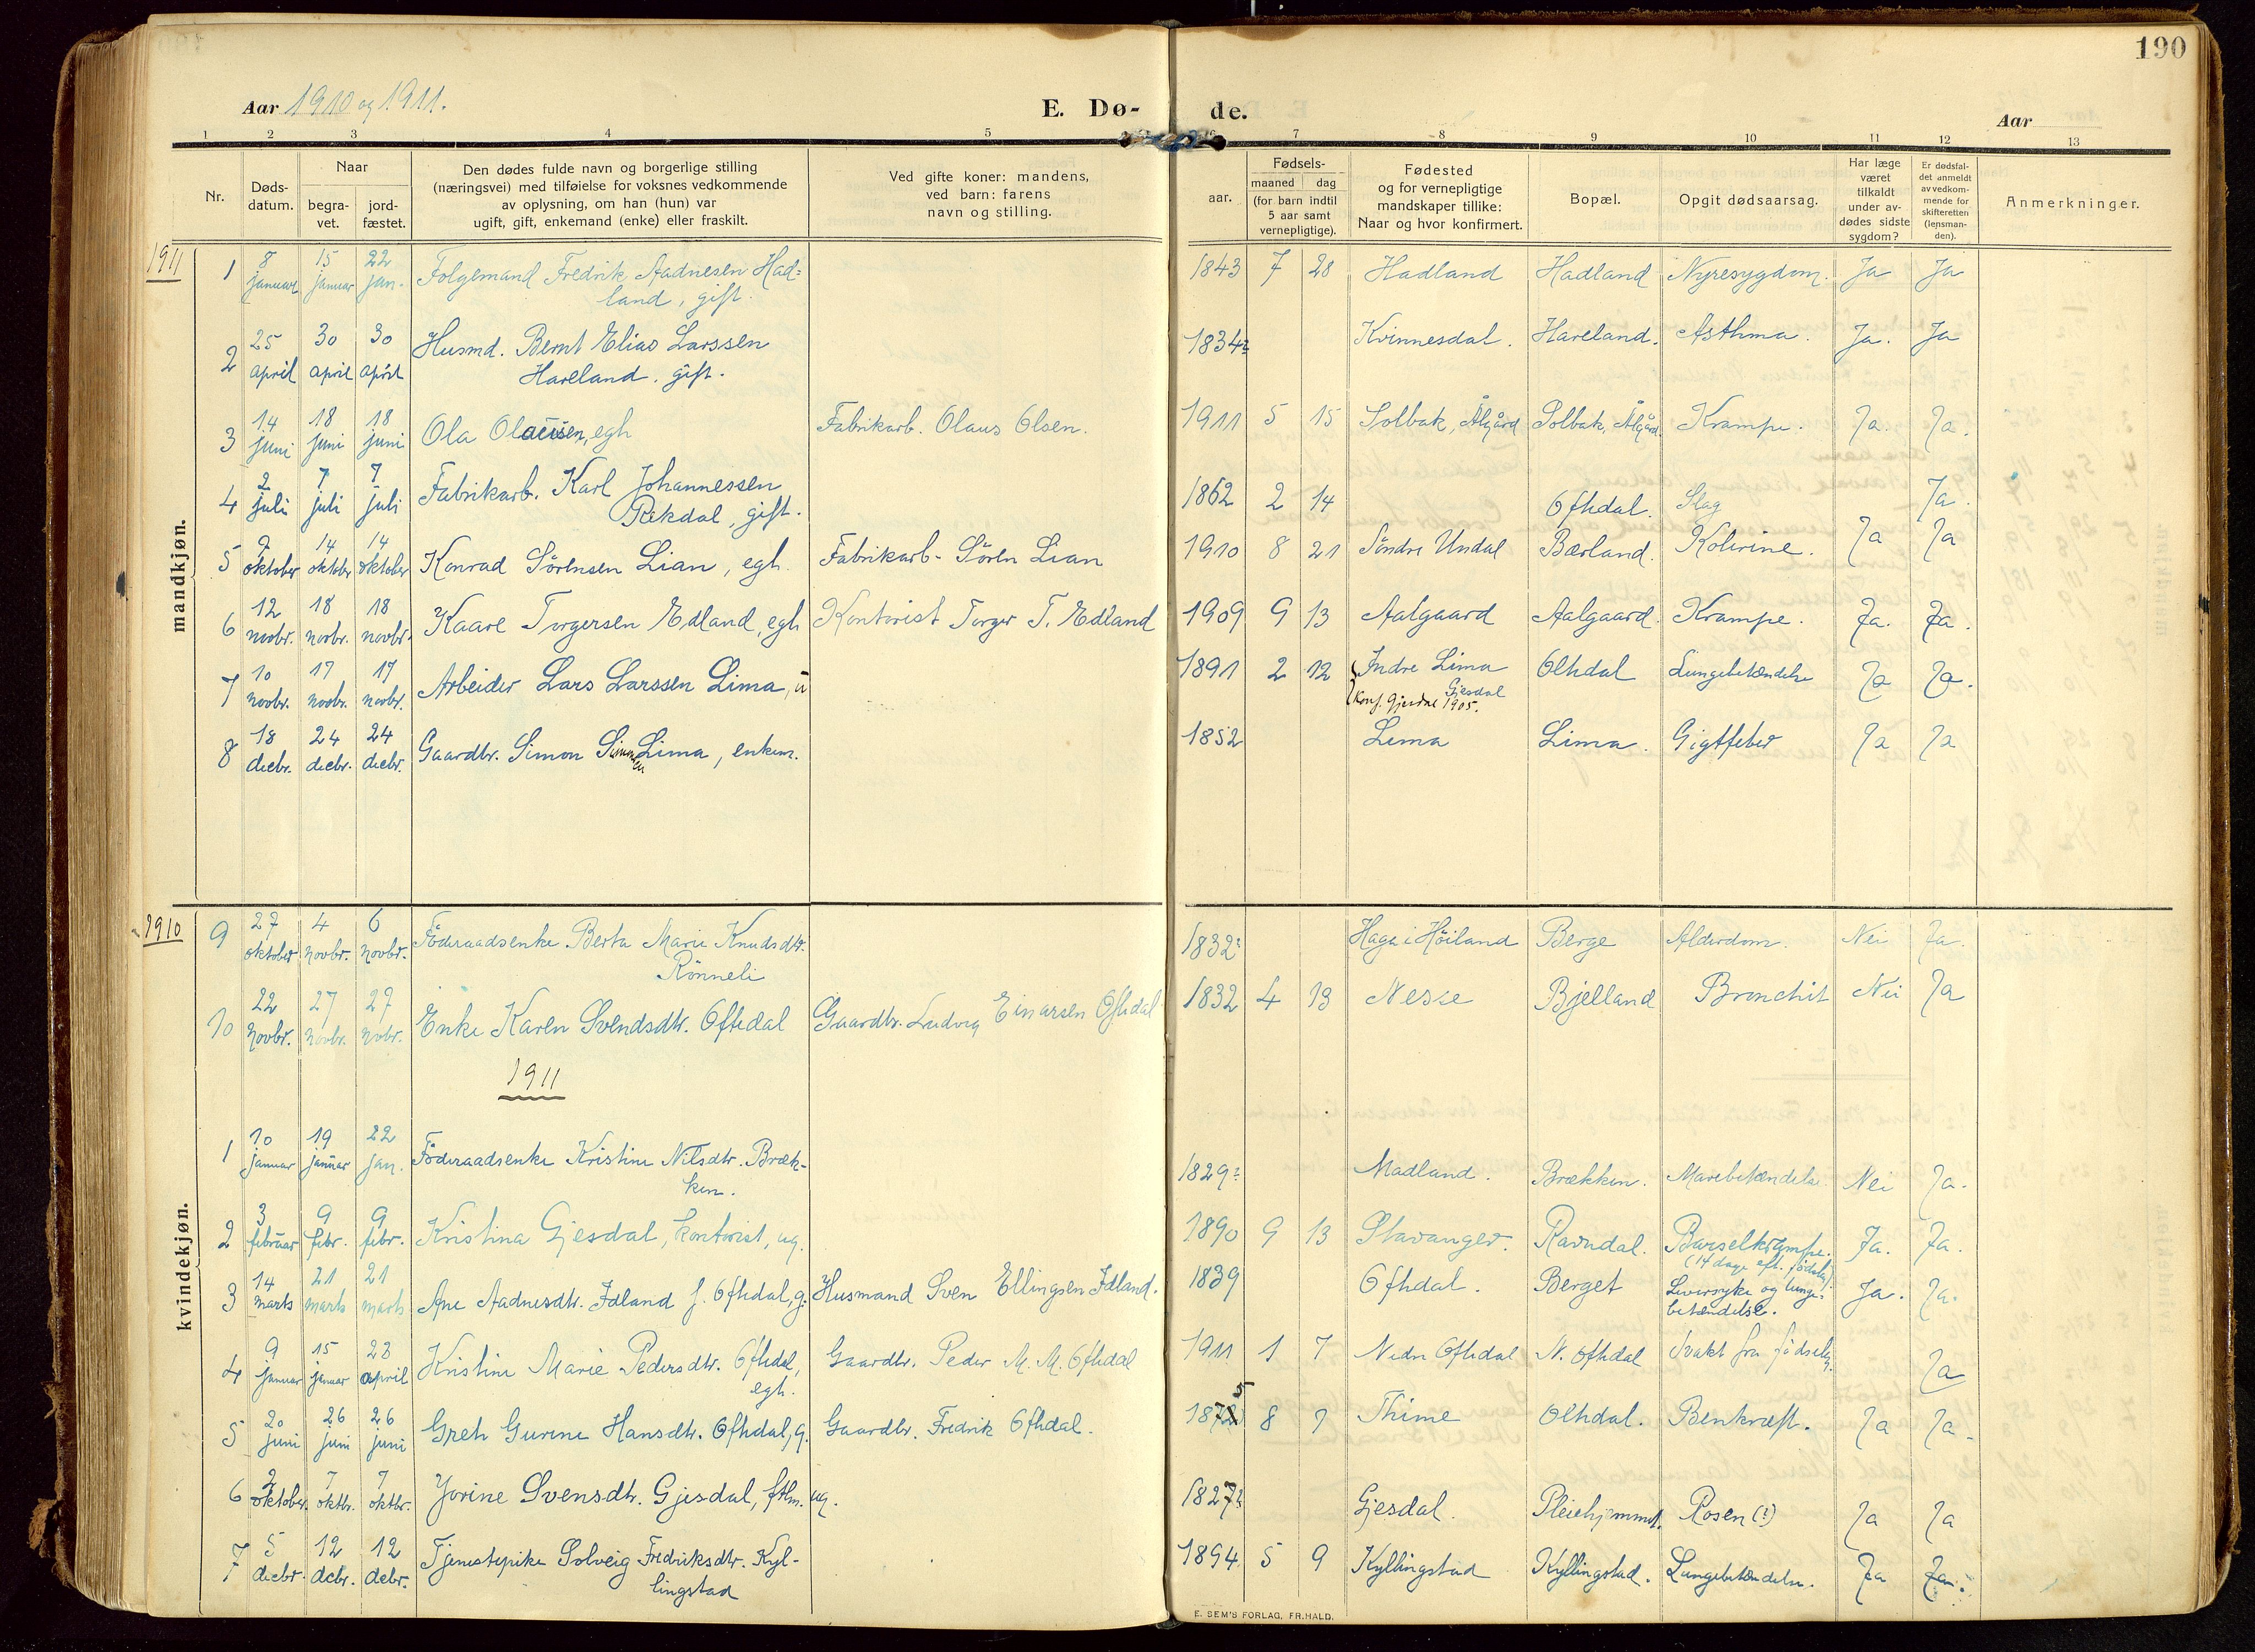 190
Aar 1910 og 1911.
E. Dø-
de.
Aar
1 2 3 4 5 6 7 8 9 10 11 12 13
Nr.
Døds-
datum.
Naar
begra-
vet.
jord-
fæstet.
Den dødes fulde navn og borgerlige stilling
(næringsvei) med tilføielse for voksnes vedkommende
av oplysning, om han (hun) var
ugift, gift, enkemand (enke) eller fraskilt.
Ved gifte koner: mandens,
ved barn: farens
navn og stilling.
Fødsels-
aar.
maaned dag
(for barn indtil
5 aar samt
vernepligtige).
Fødested
og for vernepligtige
mandskaper tillike:
Naar og hvor konfirmert.
Bopæl.
Opgit dødsaarsag.
Har læge
været
tilkaldt
under av-
dødes sidste
sygdom?
Er dødsfal-
det anmeldt
av vedkom-
mende for
skifteretten
(lensman-
den).
Anmerkninger.
mandkjøn.
1911
1 8 januar 15 januar 22 jan. Folgemand Fredrik Aadnesen Had=
land, gift. 1843 7 28 Hadland Hadland Nyresygdom. Ja Ja
2 25 april 30 april 30 april Husmd. Bernt Elias Larssen
Hareland, gift. 1834? Kvinnesdal. Hareland. Asthma. Ja. Ja
3 14 juni 18 juni 18 juni Ola Olausen, egh Fabrikarb. Olaus Olsen. 1911 5 15 Solbak, Ålgård Solbak, Ålgård. Krampe. Ja. Ja.
4 2 juli 7 juli 7 juli Fabrikarb. Karl Johannessen
Rekdal, gift. 1862 2 14 Ofthdal. Slag Ja.
5 9 oktober 14 oktober 14 oktober Konrad Sörensen Lian, egh. Fabrikarb. Sören Lian 1910 8 21 Söndre Undal Bærland. Kolerine. Ja Ja
6 12 novbr. 18 novbr. 18 novbr. Kaare Torgersen Edland, egh Kontorist Torger T. Edland 1909 9 13 Aalgaard Aalgaard. Krampe. Ja. Ja.
7 10 novbr. 17 novbr. 17 novbr. Arbeider Lars Larssen Lima, u 1891 2 12 Indre Lima
Gjesdal
konf. Gjesdal 1905. Olthdal Lungebetændelse Ja Ja.
8 18 decbr. 24 decbr. 24 decbr. Gaardbr. Simon Simonsen Lima, enkem. 1852 Lima Lima. Gigtfeber Ja Ja
kvindekjøn.
1910
9 27 oktober 4 novbr. 6 novbr. Föderaadsenke Berta Marie Knudsdtr.
Rönneli 1832? Haga i Höiland Berge Alderdom. Nei Ja.
10 22 novbr. 27 novbr. 27 novbr. Enke Karen Svendsdtr. Oftedal Gaardbr. Ludvig Einarsen Oftedal 1832 4 13 Nesse Bjelland Bronchit Nei Ja
1911
1 10 januar 19 januar 22 jan. Föderaadsenke Kristine Nilsdtr. Bræk-
ken. 1829? Madland. Brækken. Mavebetændelse. Nei Ja.
2 3 februar 9 febr. 9 febr. Kristina Gjesdal, kontorist, ug. 1890 9 13 Stavanger. Ravndal. Barselkrampe.
(14 dage eft. fødsel) Ja. Ja.
3 14 marts 21 marts 21 marts Ane Aadnesdtr. Idland f. Ofthdal, g. Husmand Sven Ellingsen Idland. 1839 Ofthdal. Berget Leversyke og lunge=
betændelse. Ja. Ja.
4 9 januar 15 januar 23 april Kristine Marie Pedersdtr. Ofthdal,
egh. Gaardbr. Peder M. M. Ofthdal 1911 1 7 Nedre Ofthdal N. Ofthdal Svakt fra fødselen. Ja
5 20 juni 26 juni 26 juni Greth Gurine Hansdtr. Ofthdal, g. Gaardbr. Fredrik Ofthdal. 1875 8 7 Thime Olthdal. Benkræft. Ja Ja.
6 2 oktober. 7 oktbr. 7 oktbr. Jorine Svensdtr. Gjesdal, fthm. ug. 1827? Gjesdal. Pleiehjemmet. Rosen (?) Ja Ja
7 5 decbr. 12 decbr. 12 decbr. Tjenestepike Solveig Fredriksdtr. Kyl-
lingstad 1894. 5 9 Kyllingstad Kyllingstad. Lungebetændelse. Ja Ja.
E. SEM'S FORLAG, FR.HALD.